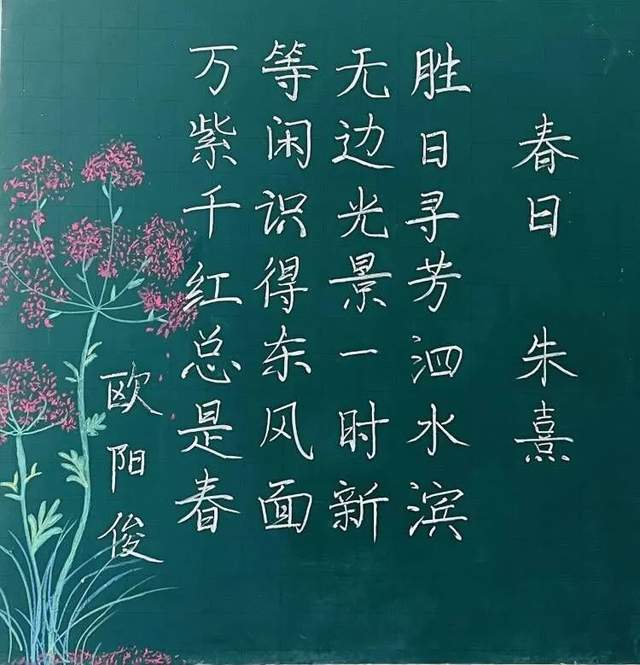 春日 朱熹
胜日寻芳泗水滨
无边光景一时新
等闲识得东风面
万紫千红总是春
欧阳俊